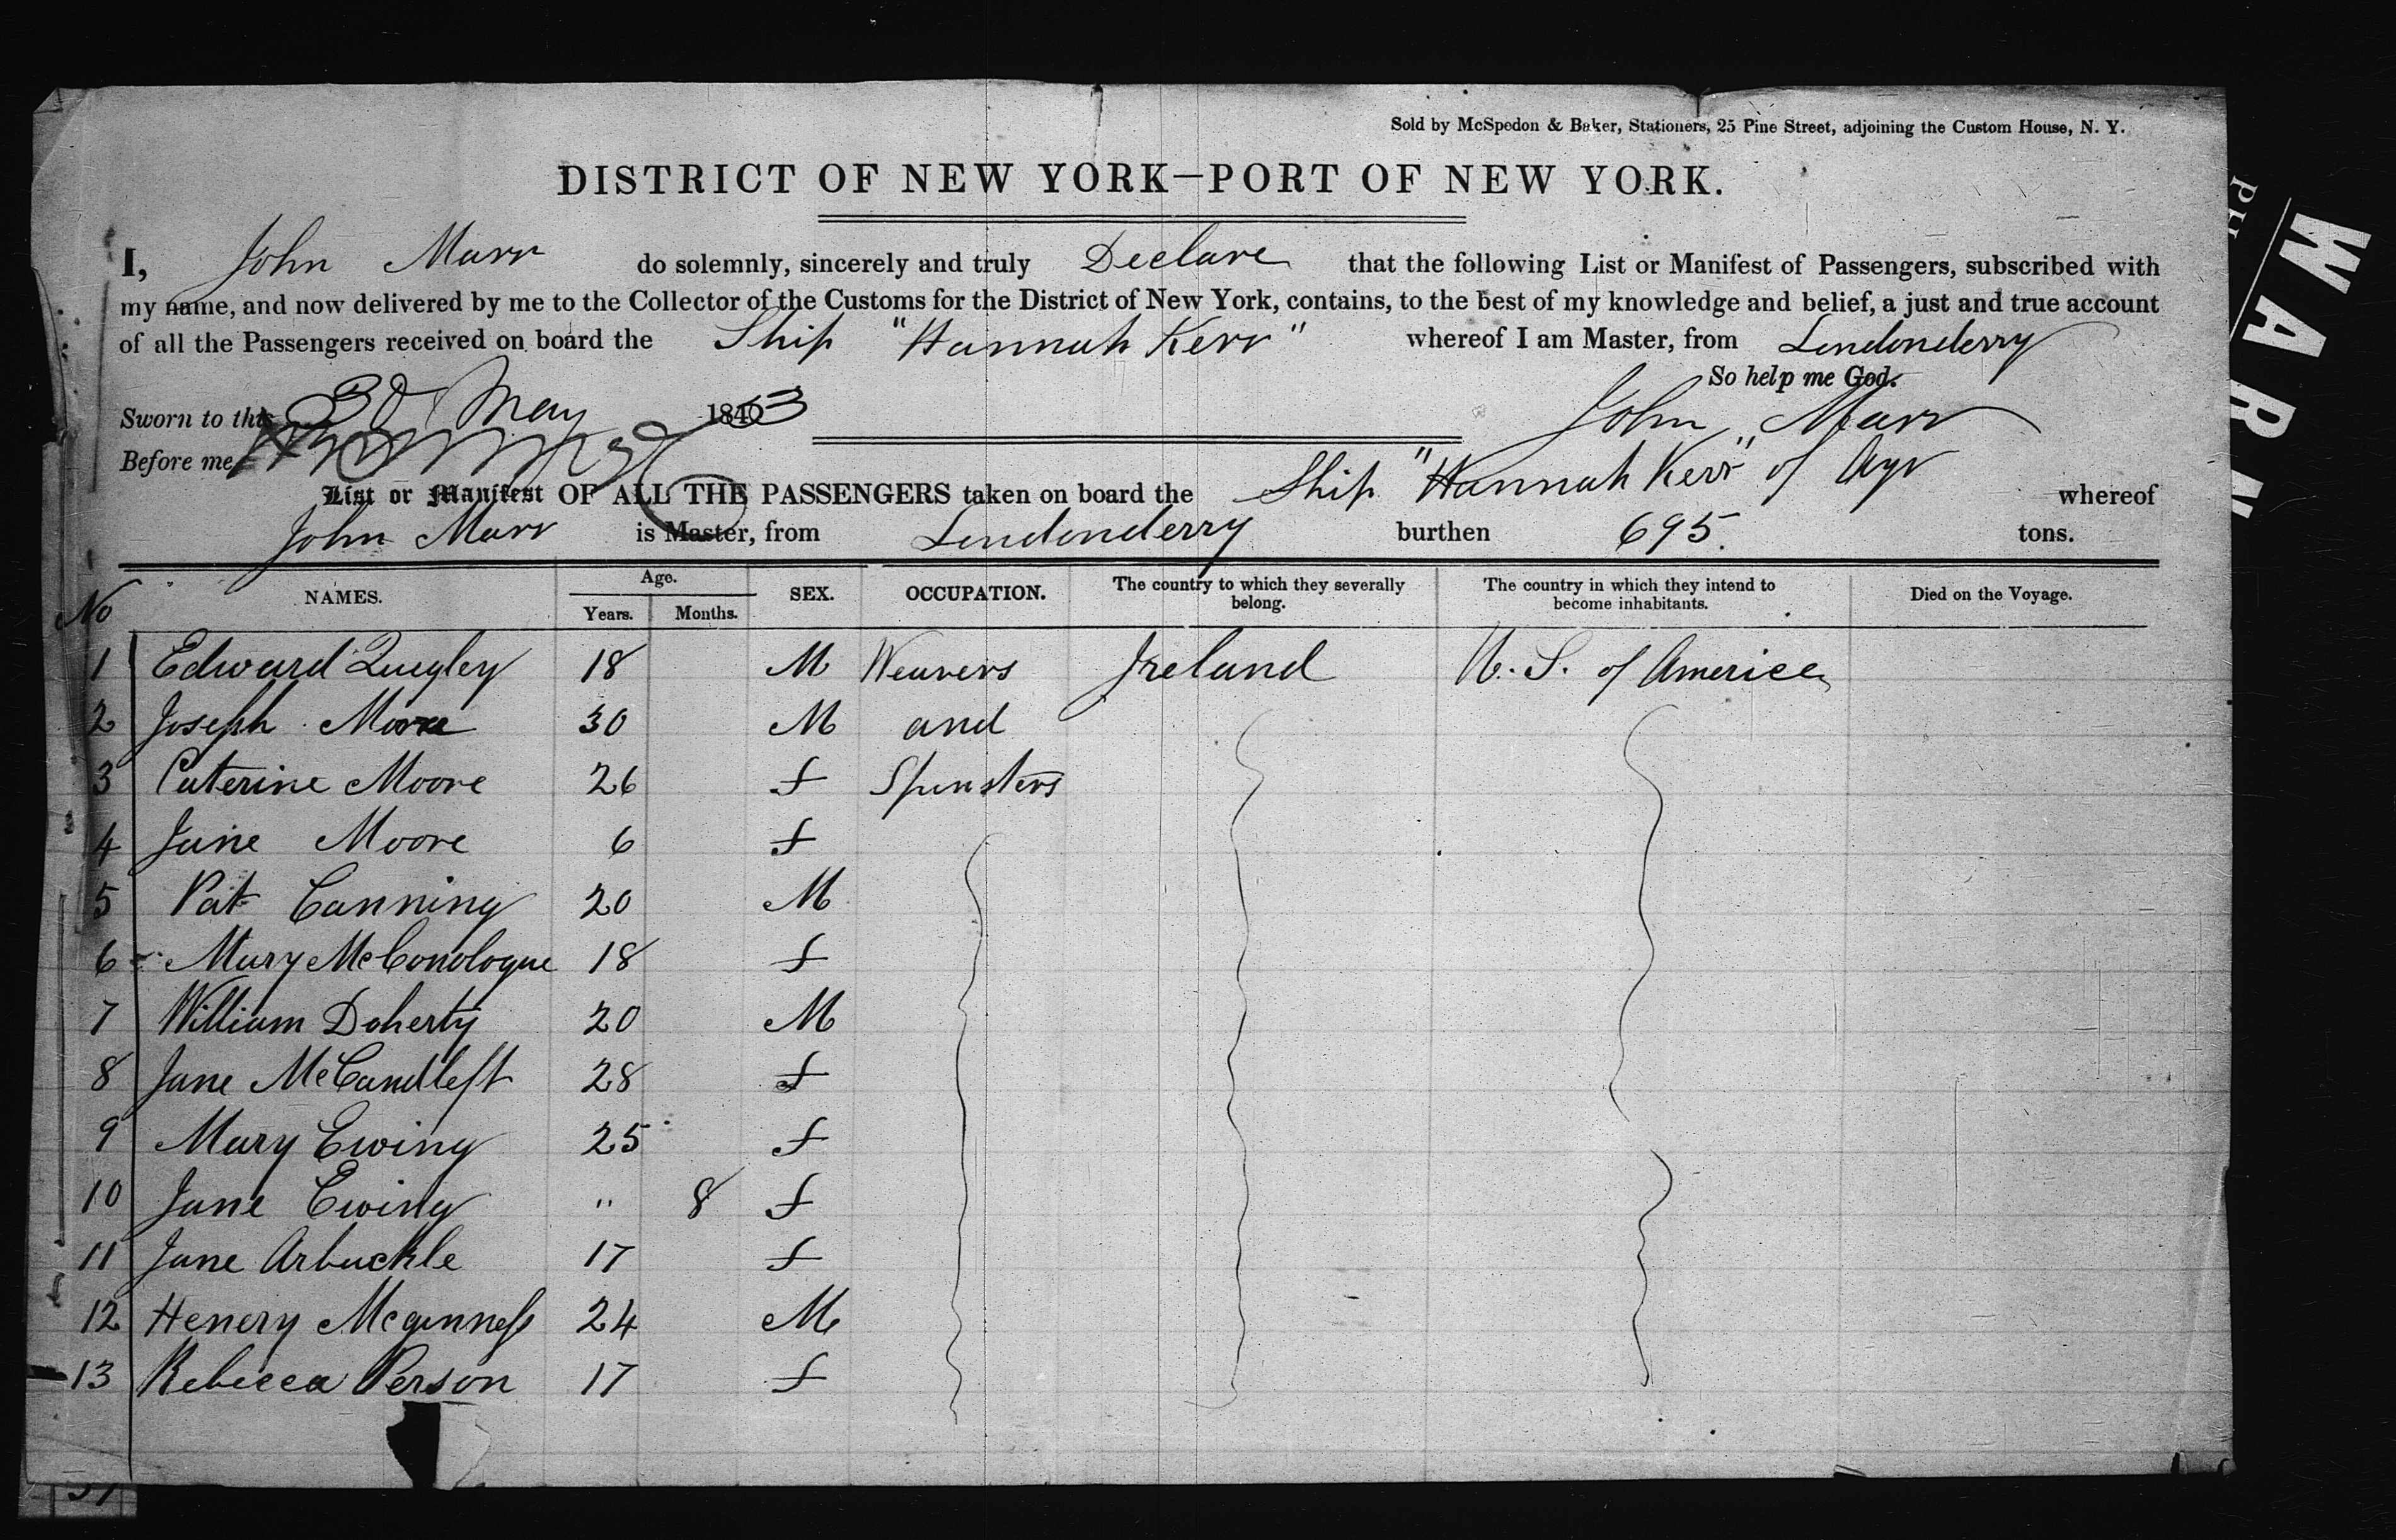 Sold by McSpedon & Baker, Stationers, 25 Pine Street, adjoining the Custom House, N. Y.
DISTRICT OF NEW YORK—PORT OF NEW YORK.
I, John Marr do solemnly, sincerely and truly Declare that the following List or Manifest of Passengers, subscribed with
my name, and now delivered by me to the Collector of the Customs for the District of New York, contains, to the best of my knowledge and belief, a just and true account
of all the Passengers received on board the Ship "Hannah Kerr" whereof I am Master, from Londonderry
So help me God.
Sworn to this 30 May 1853
John Marr
Before me
List or Manifest OF ALL THE PASSENGERS taken on board the Ship "Hannah Kerr" of Ayr whereof
John Marr is Master, from Londonderry burthen 695. tons.
No NAMES. Age. Years. Months. SEX. OCCUPATION. The country to which they severally belong. The country in which they intend to become inhabitants. Died on the Voyage.
1 Edward Quegley 18 M Weavers Ireland U. S. of America
2 Joseph Moore 30 M and
3 Caterine Moore 26 f Spinsters
4 Jane Moore 6 f
5 Pat Canning 20 M
6 Mary McConologue 18 f
7 William Doherty 20 M
8 Jane McCandless 28 f
9 Mary Ewing 25 f
10 Jane Ewing " 8 f
11 Jane Arbuckle 17 f
12 Henery Mcginness 24 M
13 Rebecca Person 17 f
WARN